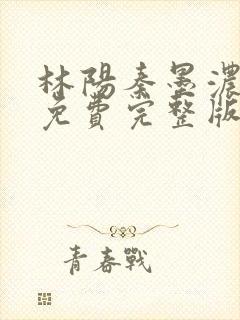 林陽秦墨濃
免費完整版
青春戰